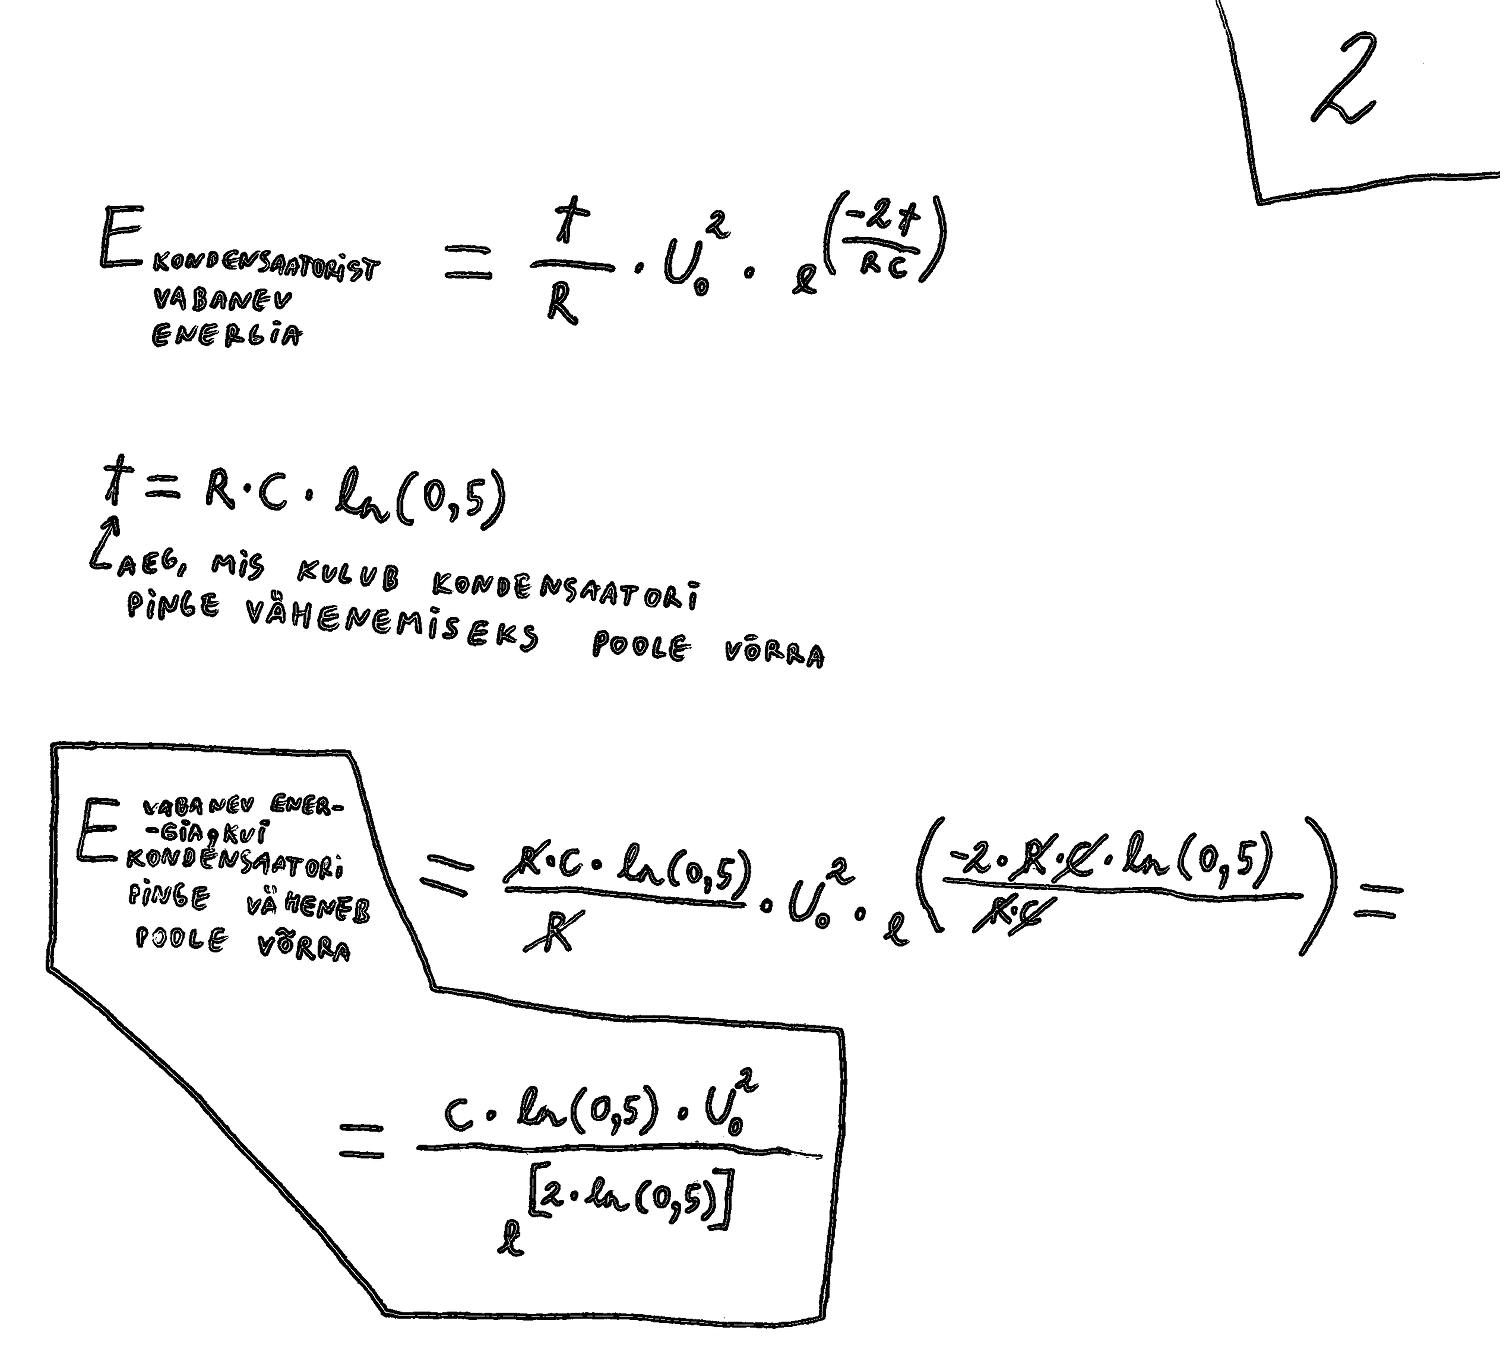 2
E KONDENSAATORIST VABANEV ENERGIA = t/R · U₀² · e^(-2t/RC)
t = R·C · ln(0,5)
AEG, MIS KULUB KONDENSAATORI
PINGE VÄHENEMISEKS POOLE VÕRRA
E VABANEV ENER-
-GIA, KUI
KONDENSAATORI
PINGE VÄHENEB
POOLE VÕRRA
= R·C·ln(0,5)/R · U₀² · e^(-2·R·C·ln(0,5)/R·C) =
= C · ln(0,5) · U₀² / e^[2·ln(0,5)]